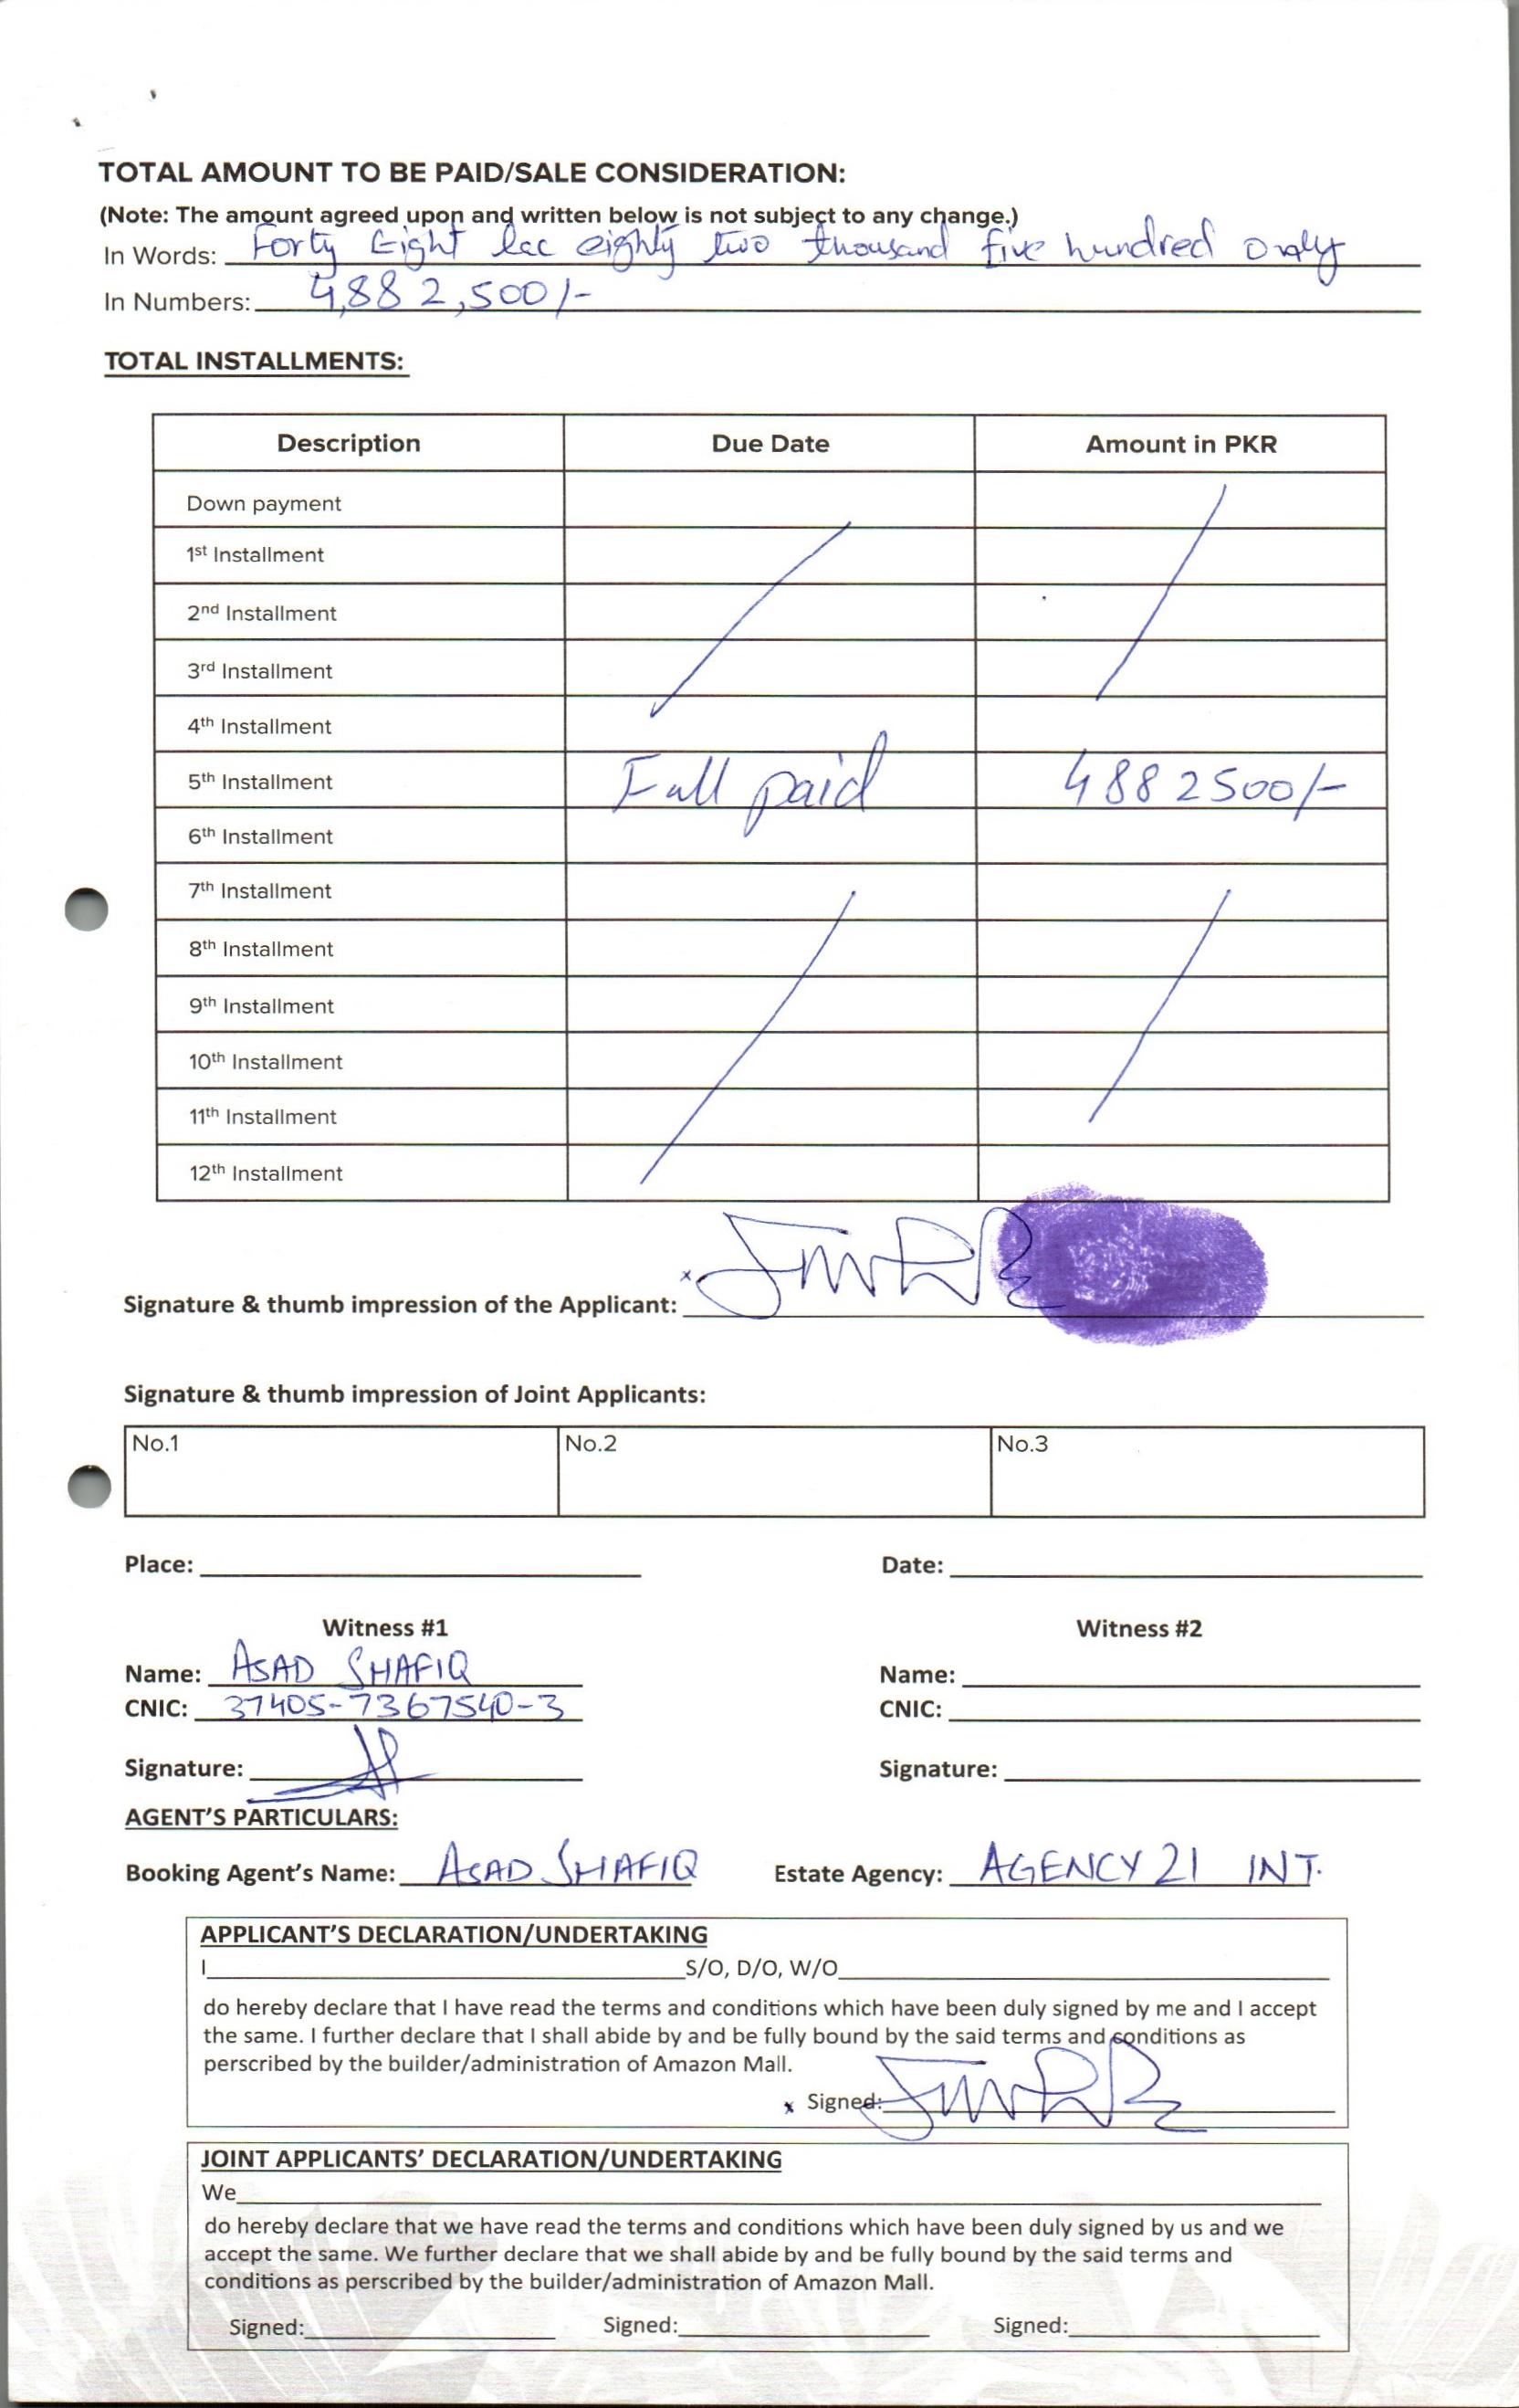 TOTAL AMOUNT TO BE PAID/SALE CONSIDERATION:
(Note: The amount agreed upon and written below is not subject to any change.)
In Words: Forty Eight lac eighty two thousand five hundred only
In Numbers: 4,882,500/-
TOTAL INSTALLMENTS:
Description Due Date Amount in PKR
Down payment
1st Installment
2nd Installment
3rd Installment
4th Installment
5th Installment Full paid 4882500/-
6th Installment
7th Installment
8th Installment
9th Installment
10th Installment
11th Installment
12th Installment
x
Signature & thumb impression of the Applicant:
Signature & thumb impression of Joint Applicants:
No.1 No.2 No.3
Place: Date:
Witness #1 Witness #2
Name: ASAD SHAFIQ Name:
CNIC: 37405-7367540-3 CNIC:
Signature: Signature:
AGENT'S PARTICULARS:
Booking Agent's Name: ASAD SHAFIQ Estate Agency: AGENCY 21 INT.
APPLICANT'S DECLARATION/UNDERTAKING
I S/O, D/O, W/O
do hereby declare that I have read the terms and conditions which have been duly signed by me and I accept
the same. I further declare that I shall abide by and be fully bound by the said terms and conditions as
perscribed by the builder/administration of Amazon Mall.
x Signed:
JOINT APPLICANTS' DECLARATION/UNDERTAKING
We
do hereby declare that we have read the terms and conditions which have been duly signed by us and we
accept the same. We further declare that we shall abide by and be fully bound by the said terms and
conditions as perscribed by the builder/administration of Amazon Mall.
Signed: Signed: Signed: